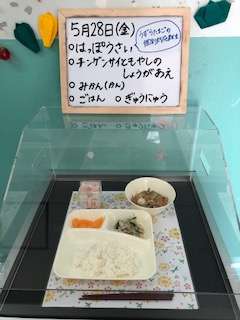 5月28日(金)
○はっぽうさい
○チンゲンサイともやしの
しょうがあえ
○みかん(かん)
○ごはん ○ぎゅうにゅう
うずらたまごの